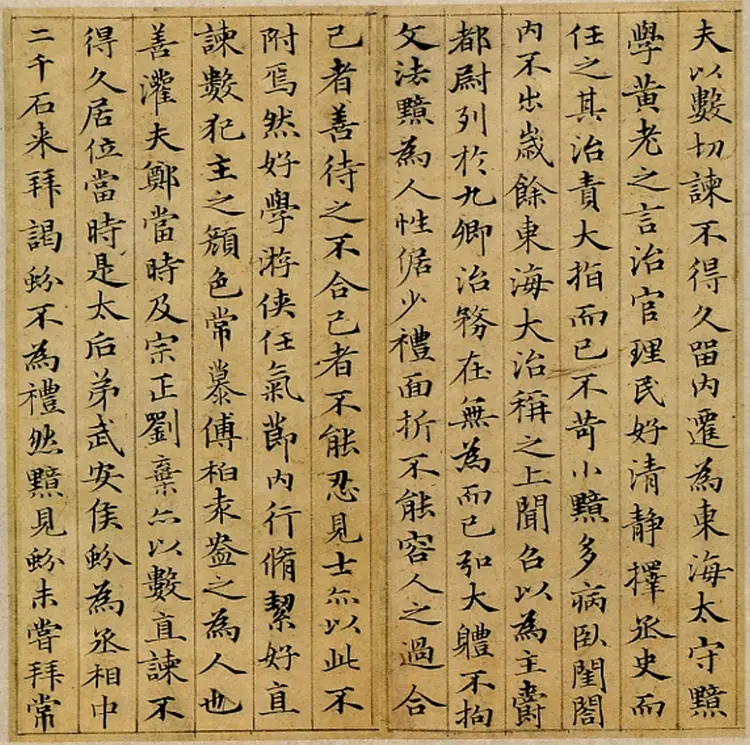 夫以數切諫不得久留內遷為東海太守黯
學黃老之言治官理民好清静擇丞史而
任之其治責大指而已不苛小黯多病臥閨閤
內不出歲餘東海大治稱之上聞召以為主爵
都尉列於九卿治務在無為而已弘大軆不拘
文法黯為人性倨少禮面折不能容人之過合
己者善待之不合己者不能忍見士亦以此不
附焉然好學游俠任氣節內行脩絜好直
諫數犯主之顏色常慕傅柏袁盎之為人也
善灌夫鄭當時及宗正劉棄亦以數直諫不
得久居位當時是太后弟武安侯蚡為丞相中
二千石来拜謁蚡不為禮然黯見蚡未嘗拜常